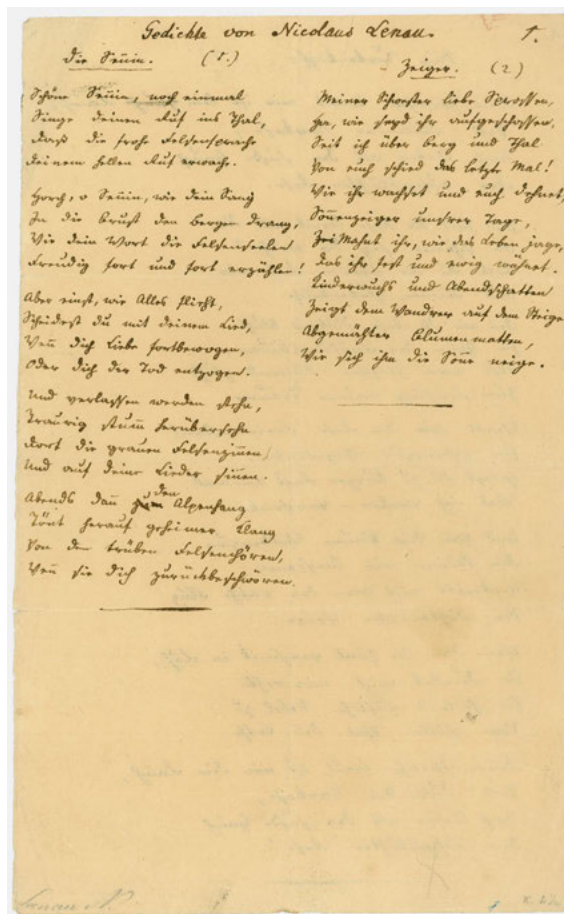 Gedichte von Nicolaus Lenau.
1.
Die Señin. (1.)
Schöne Señin, noch einmal
Singe deinen Ruf ins Thal,
Daß die frohe Felsensprache
Deinem hellen Ruf erwache.
Horch, o Señin, wie dein Sang
In die Brust den Bergen drang,
Wie dein Wort die Felsenseelen
Freudig fort und fort erzählen!
Aber einst, wie Alles flieht,
Scheidest du mit deinem Lied,
Weñ dich Liebe fortbewogen,
Oder dich der Tod entzogen.
Und verlassen werden stehn,
Traurig stumm herübersehn
Dort die grauen Felsenzinnen
Und auf deine Lieder sinnen.
Abends dañ den Alpenhang
Tönt herauf geheimer Klang
Von den trüben Felsenchören,
Weñ sie dich zurückbeschwören.
Zeiger. (2)
Meiner Schwester liebe Sprossen,
Ha, wie seyd ihr aufgeschossen,
Seit ich über Berg und Thal
Von euch schied das letzte Mal!
Wie ihr wachset und euch dehnet,
Soñenzeiger unsrer Tage,
Mahnt ihr, wie das Leben jage,
Das ihr fest und ewig wähnet.
Kinderwuchs und Abendschatten
Zeigt dem Wandrer auf dem Steige
Abgemähter Blumenmatten,
Wie sich ihm die Soñe neige.
Lenau N.